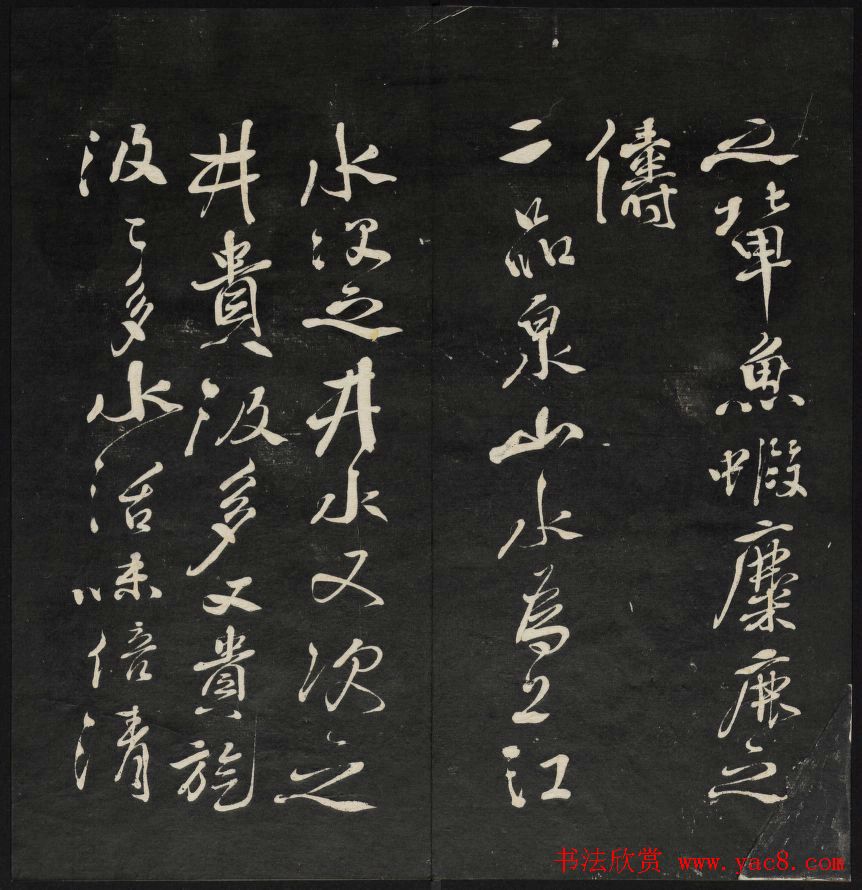 之輩魚蝦麋鹿之
儔
二品泉山水為上江
水次之井水又次之
井貴汲多又貴旋
汲汲多水活味倍清
书法欣赏 www.yac8.com